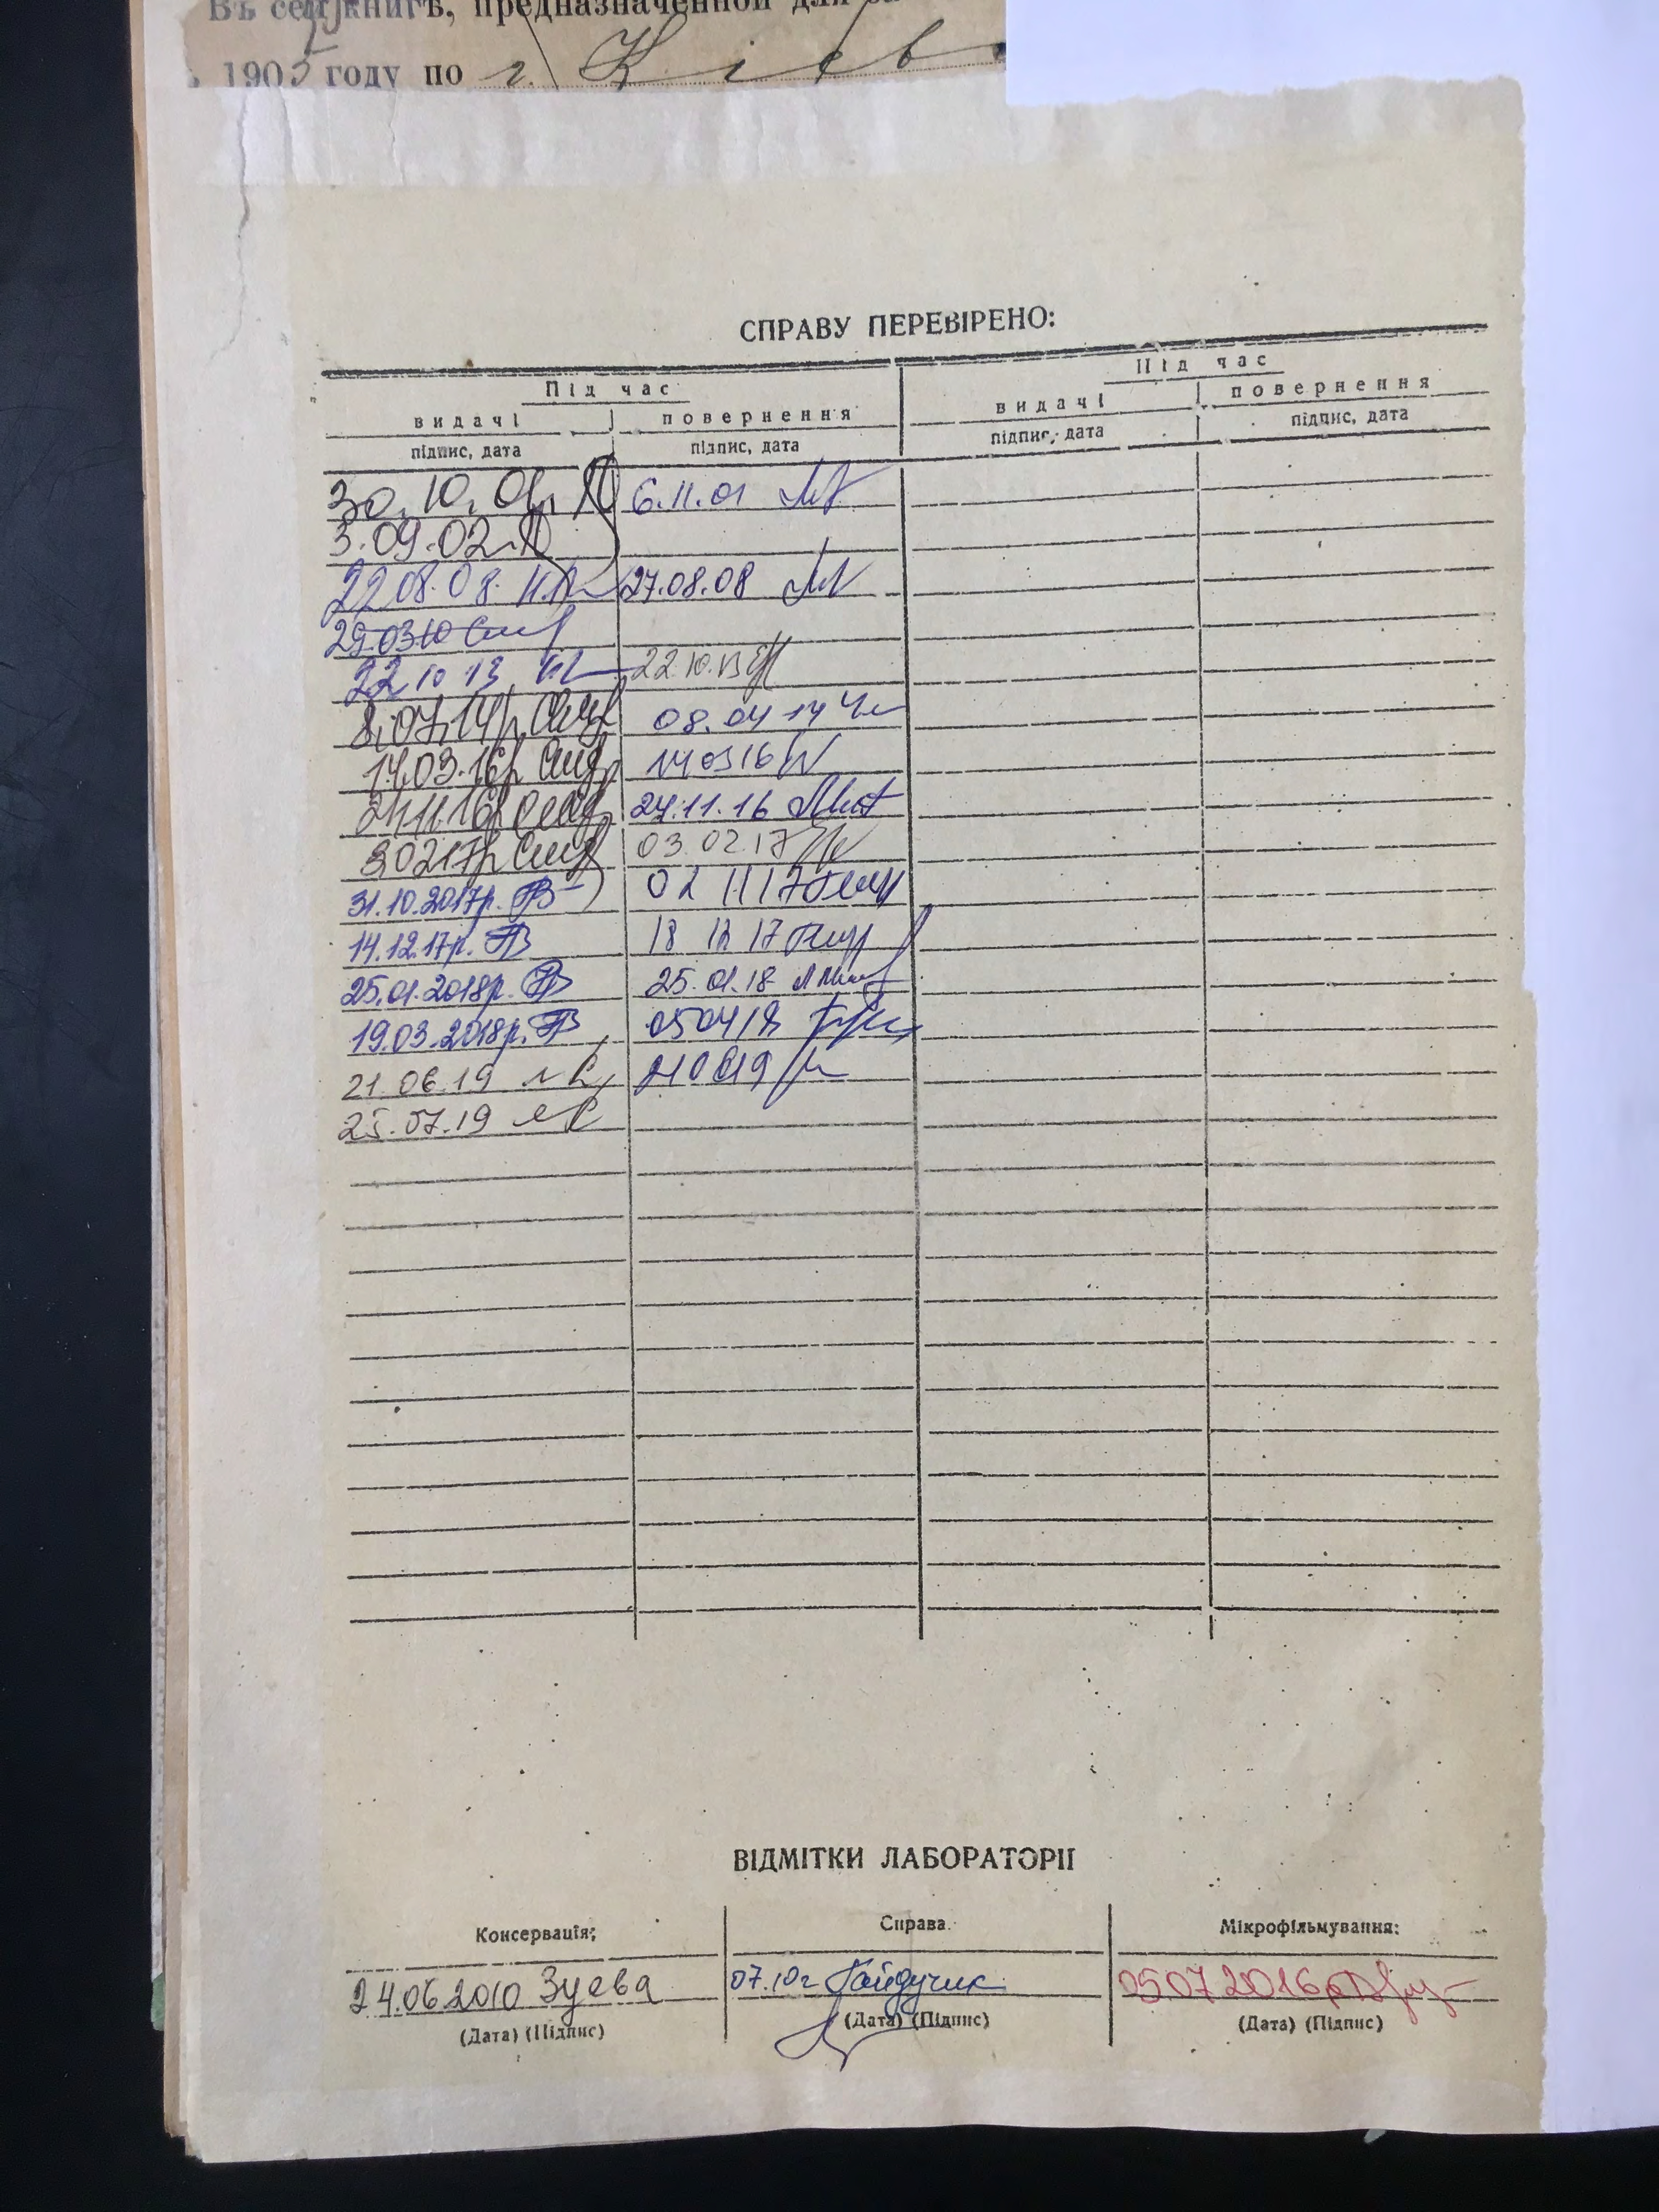 Въ сей книгѣ, предназначенной для
1905 году по г. Кіев
СПРАВУ ПЕРЕВІРЕНО:
Під час
Під час
видачі повернення видачі повернення
підпис, дата підпис, дата підпис, дата підпис, дата
30.10.01р. 6.11.01
3.09.02
22.08.08. 27.08.08
29.03.10
22 10 13 22.10.13
8.07.14р 08.04 14
14.03.16р 14 03 16
24.11.16р 24.11.16
3.02 17р 03.02.17
31.10.2017р. 02 11 17
14.12.17р. 18 12 17
25.01.2018р. 25.01.18
19.03.2018р. 05 04 18
21.06.19 21 06 19
25.07.19
ВІДМІТКИ ЛАБОРАТОРІІ
Консервація: Справа. Мікрофільмування:
24.06.2010 Зуева 07.10г Гайдучик 05 07 2016р
(Дата) (Підпис) (Дата) (Підпис) (Дата) (Підпис)